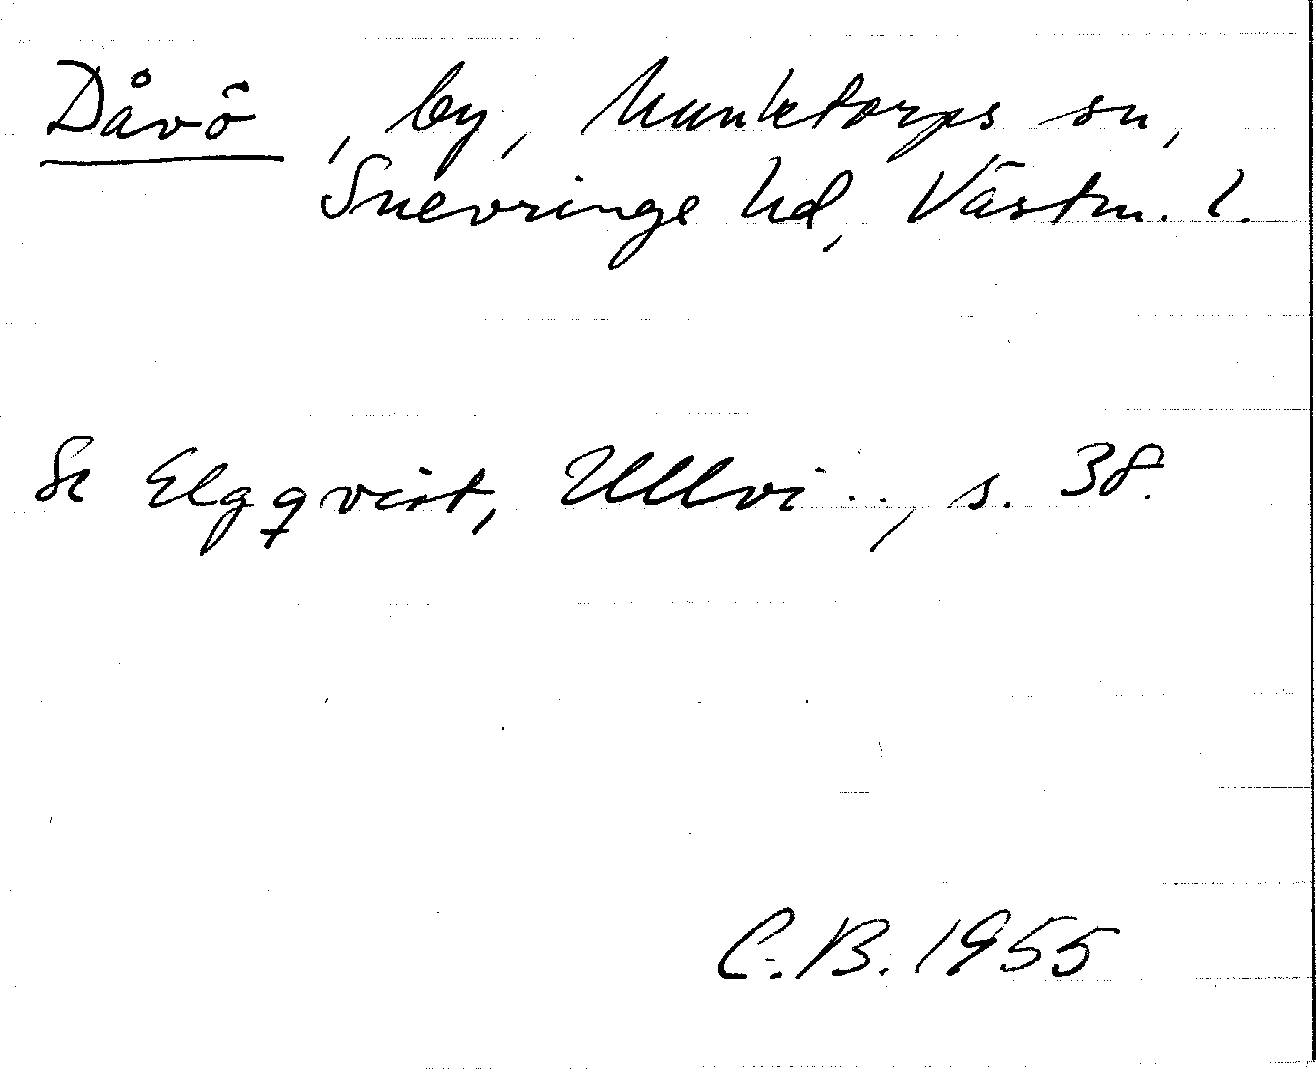 Dåvö, by, Munktorps sn,
Snevringe hd, Västm. l.
Se Elgqvist, Ullvi . ., s. 38.
C.B. 1955